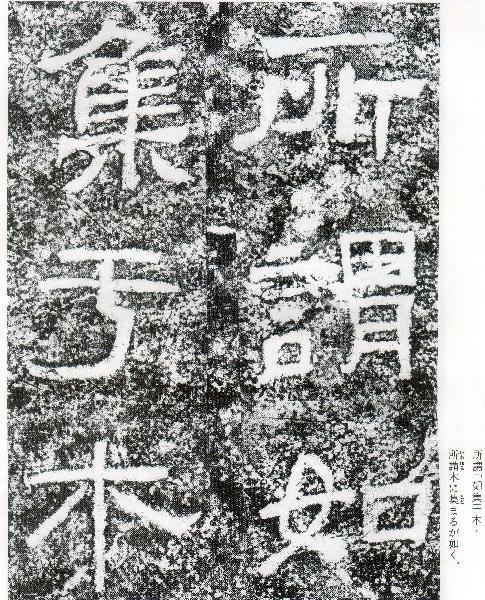 所謂如
集于木
所謂如集于木、
所謂木に集まるが如く、